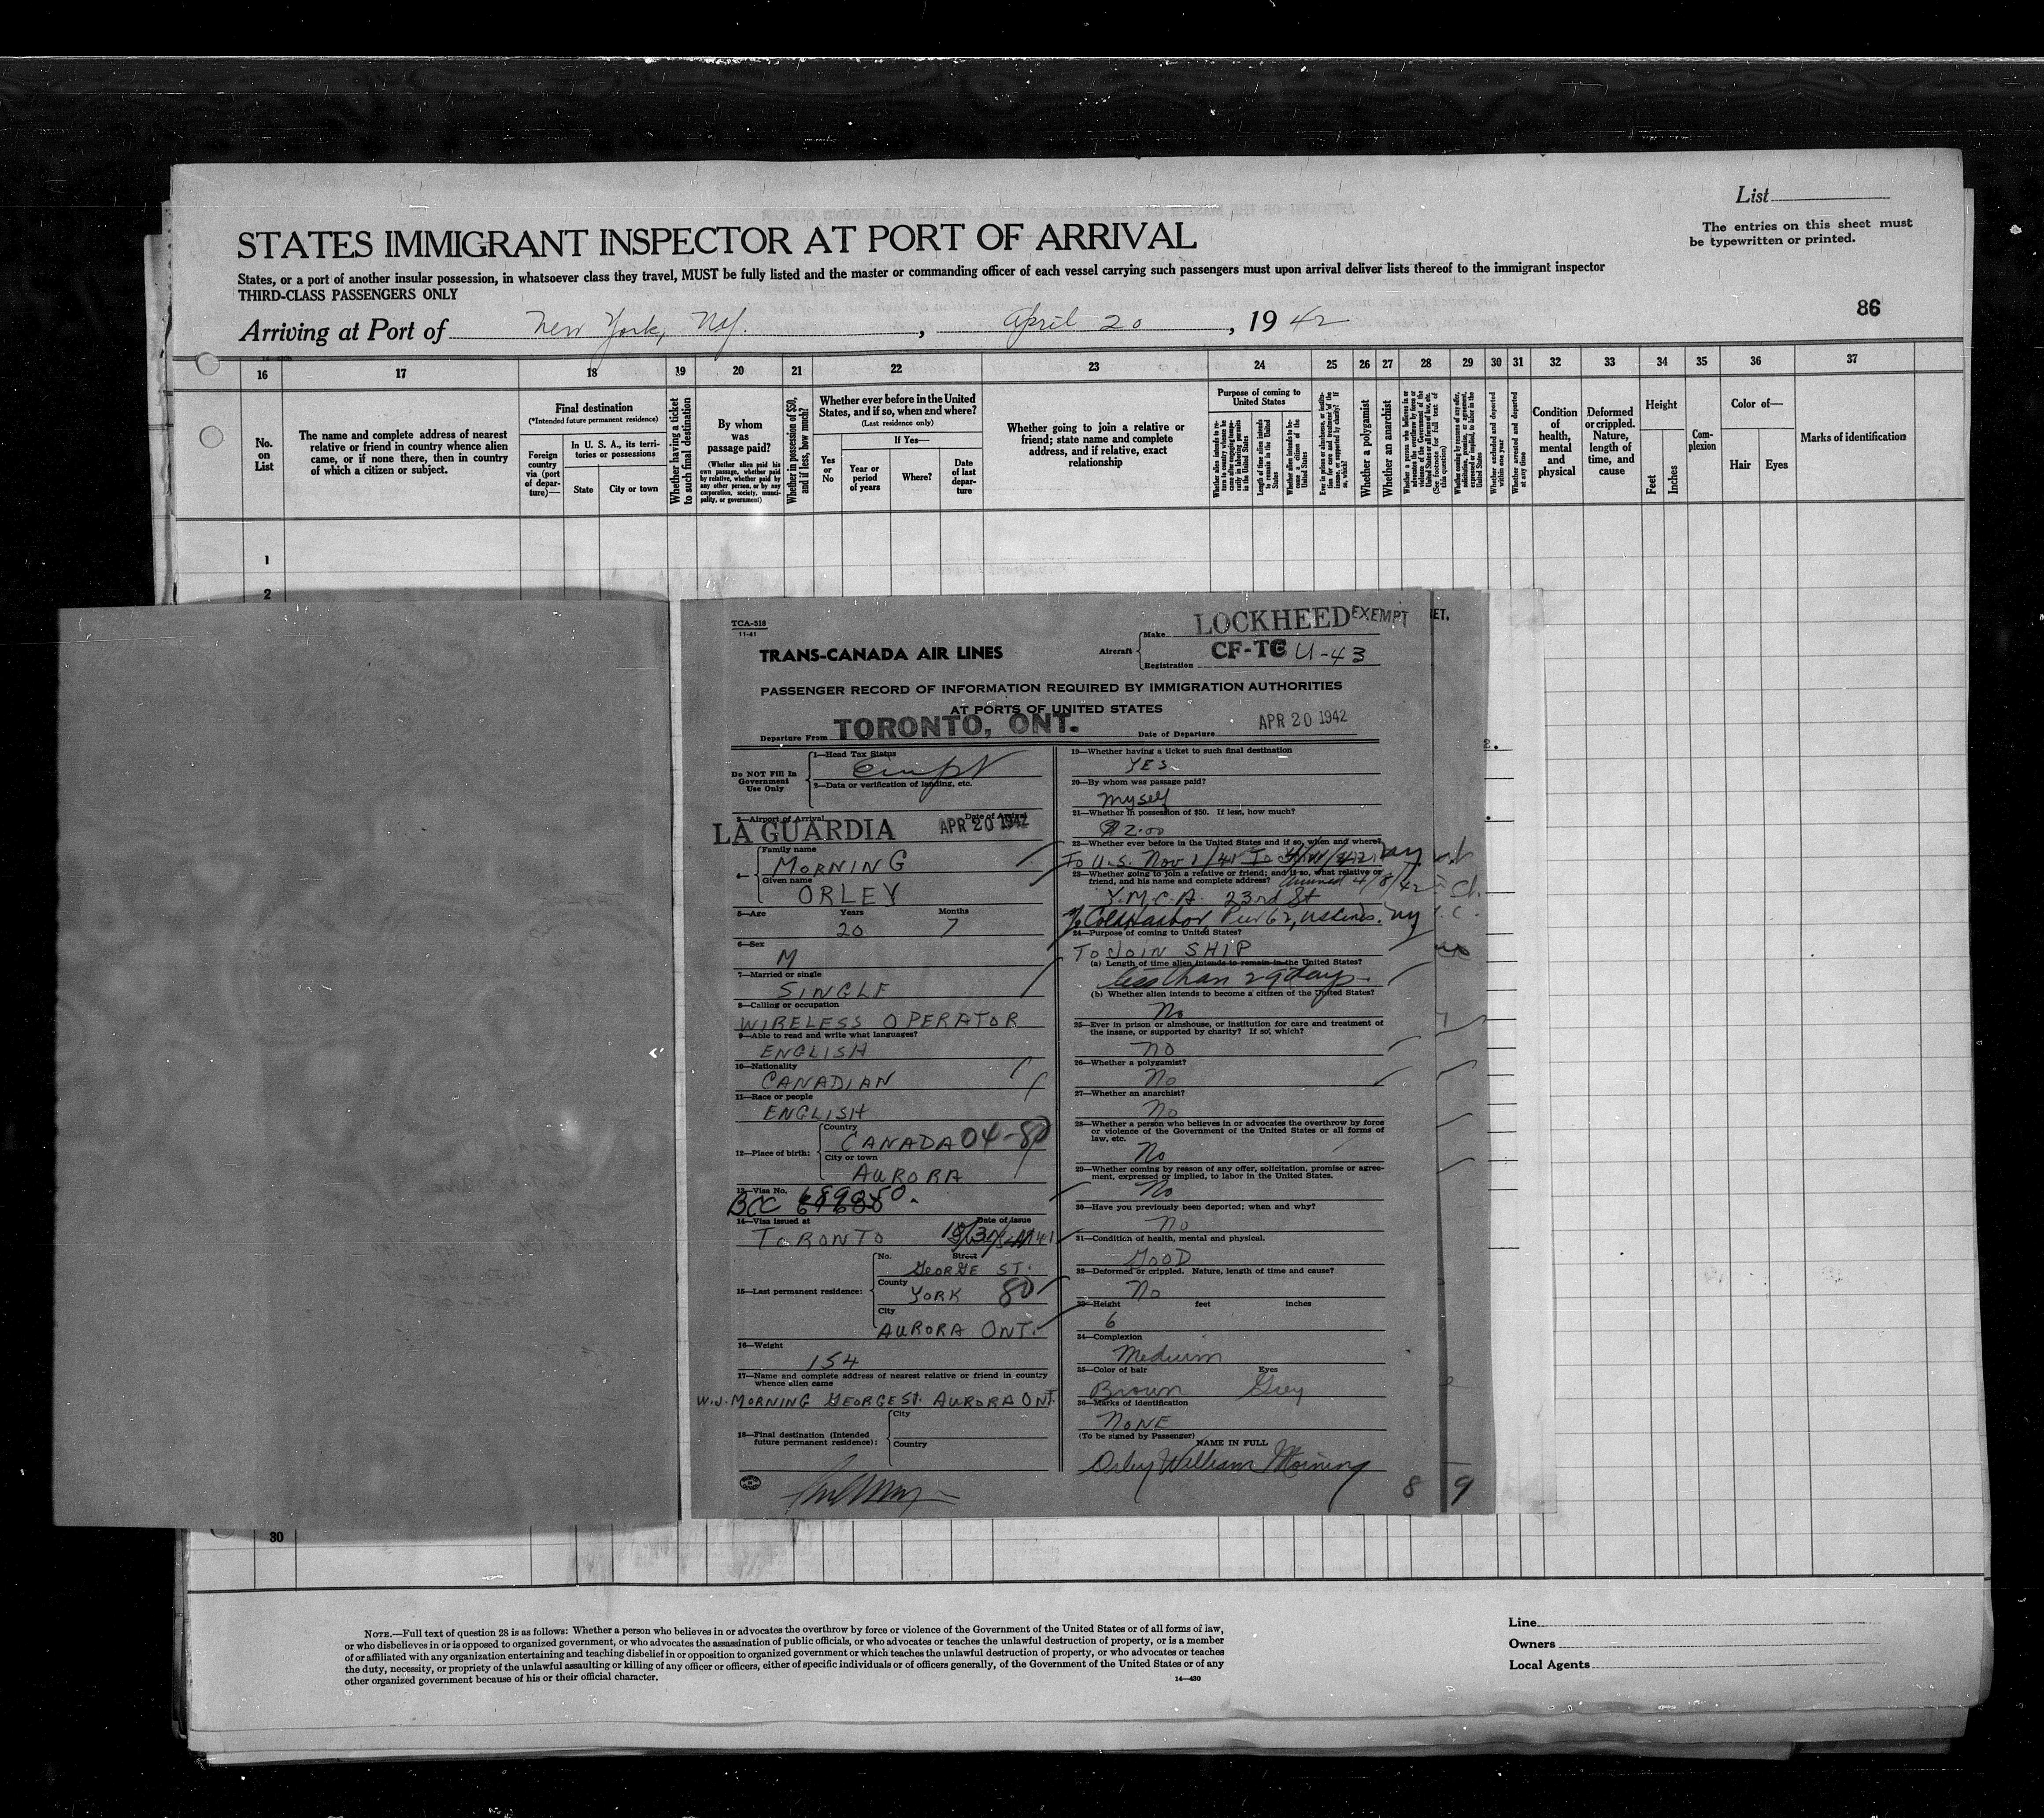 List
The entries on this sheet must
be typewritten or printed.
STATES IMMIGRANT INSPECTOR AT PORT OF ARRIVAL
States, or a port of another insular possession, in whatsoever class they travel, MUST be fully listed and the master or commanding officer of each vessel carrying such passengers must upon arrival deliver lists thereof to the immigrant inspector
THIRD-CLASS PASSENGERS ONLY
86
Arriving at Port of New York, NY. , April 20 , 1942
16 17 18 19 20 21 22 23 24 25 26 27 28 29 30 31 32 33 34 35 36 37
No. on List
The name and complete address of nearest
relative or friend in country whence alien
came, or if none there, then in country
of which a citizen or subject.
Final destination
(*Intended future permanent residence)
Foreign
country
via (port
of depar-
ture)—
In U. S. A., its terri-
tories or possessions
State
City or town
Whether having a ticket
to such final destination
By whom
was
passage paid?
(Whether alien paid his
own passage, whether paid
by relative, whether paid by
any other person, or by any
corporation, society, munici-
pality, or government)
Whether in possession of $50,
and if less, how much?
Whether ever before in the United
States, and if so, when and where?
(Last residence only)
If Yes—
Yes
or
No
Year or
period
of years
Where?
Date
of last
depar-
ture
Whether going to join a relative or
friend; state name and complete
address, and if relative, exact
relationship
Purpose of coming to
United States
Length of time alien intends
to remain in the United
States
Whether a polygamist
Whether an anarchist
Whether excluded and deported
within one year
Whether arrested and deported
at any time
Condition
of
health,
mental
and
physical
Deformed
or crippled.
Nature,
length of
time, and
cause
Height
Feet
Inches
Com-
plexion
Color of—
Hair
Eyes
Marks of identification
1
2
TCA-318
11-41
TRANS-CANADA AIR LINES
Aircraft
Make LOCKHEED EXEMPT
Registration CF-TC U-43
PASSENGER RECORD OF INFORMATION REQUIRED BY IMMIGRATION AUTHORITIES
AT PORTS OF UNITED STATES
Departure From TORONTO, ONT.
Date of Departure APR 20 1942
Do NOT Fill In
Government
Use Only
1—Head Tax Status
2—Data or verification of landing, etc.
3—Airport of Arrival
Date of Arrival
LA GUARDIA APR 20 1942
Family name
MORNING
Given name
ORLEY
5—Age Years Months
20 7
6—Sex
M
7—Married or single
SINGLE
8—Calling or occupation
WIRELESS OPERATOR
9—Able to read and write what languages?
ENGLISH
10—Nationality
CANADIAN
11—Race or people
ENGLISH
12—Place of birth:
Country
CANADA 04-80
City or town
AURORA
13—Visa No.
BCC
14—Visa issued at Date of issue
TORONTO
15—Last permanent residence:
No. Street
GEORGE ST.
County
YORK 80
City
AURORA ONT.
16—Weight
154
17—Name and complete address of nearest relative or friend in country
whence alien came
W.J. MORNING GEORGE ST. AURORA ONT.
18—Final destination (Intended
future permanent residence):
City
Country
19—Whether having a ticket to such final destination
YES
20—By whom was passage paid?
Myself
21—Whether in possession of $50. If less, how much?
22—Whether ever before in the United States and if so, when and where?
To U.S. Nov 1/41 To
23—Whether going to join a relative or friend; and if so, what relative or
friend, and his name and complete address? 4/8/42
Y.M.C.A. 23rd St
Pier 62, US Lines. NY
24—Purpose of coming to United States?
TO JOIN SHIP
(a) Length of time alien intends to remain in the United States?
less than 29 days
(b) Whether alien intends to become a citizen of the United States?
No
25—Ever in prison or almshouse, or institution for care and treatment of
the insane, or supported by charity? If so, which?
NO
26—Whether a polygamist?
No
27—Whether an anarchist?
No
28—Whether a person who believes in or advocates the overthrow by force
or violence of the Government of the United States or all forms of
law, etc.
No
29—Whether coming by reason of any offer, solicitation, promise or agree-
ment, expressed or implied, to labor in the United States.
No
30—Have you previously been deported; when and why?
No
31—Condition of health, mental and physical.
GOOD
32—Deformed or crippled. Nature, length of time and cause?
No
33—Height feet inches
6
34—Complexion
Medium
35—Color of hair Eyes
Brown Grey
36—Marks of identification
NONE
(To be signed by Passenger)
NAME IN FULL
Orley William Morning
8 9
30
NOTE.—Full text of question 28 is as follows: Whether a person who believes in or advocates the overthrow by force or violence of the Government of the United States or of all forms of law,
or who disbelieves in or is opposed to organized government, or who advocates the assassination of public officials, or who advocates or teaches the unlawful destruction of property, or is a member
of or affiliated with any organization entertaining and teaching disbelief in or opposition to organized government or which teaches the unlawful destruction of property, or who advocates or teaches
the duty, necessity, or propriety of the unlawful assaulting or killing of any officer or officers, either of specific individuals or of officers generally, of the Government of the United States or of any
other organized government because of his or their official character.
14—430
Line
Owners
Local Agents